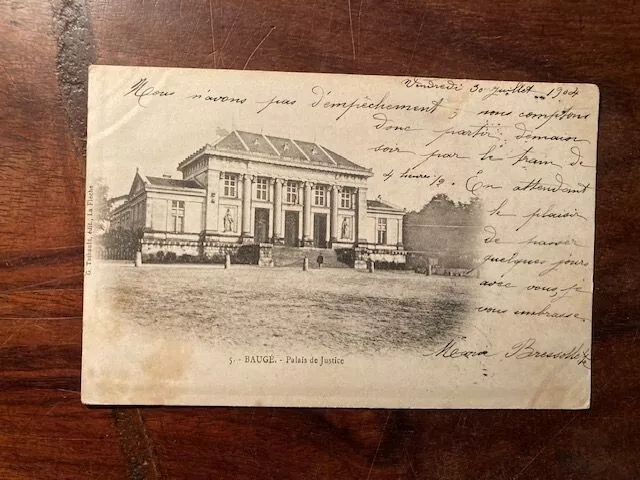 Vendredi 30 Juillet 1904
Nous n'avons pas d'empêchement, nous comptons
donc partir demain
soir par le tram de
4 heures ½. En attendant
le plaisir
de passer
quelques jours
avec vous, je
vous embrasse.
G. Tabault, édit., La Flèche
5. - BAUGÉ. - Palais de Justice